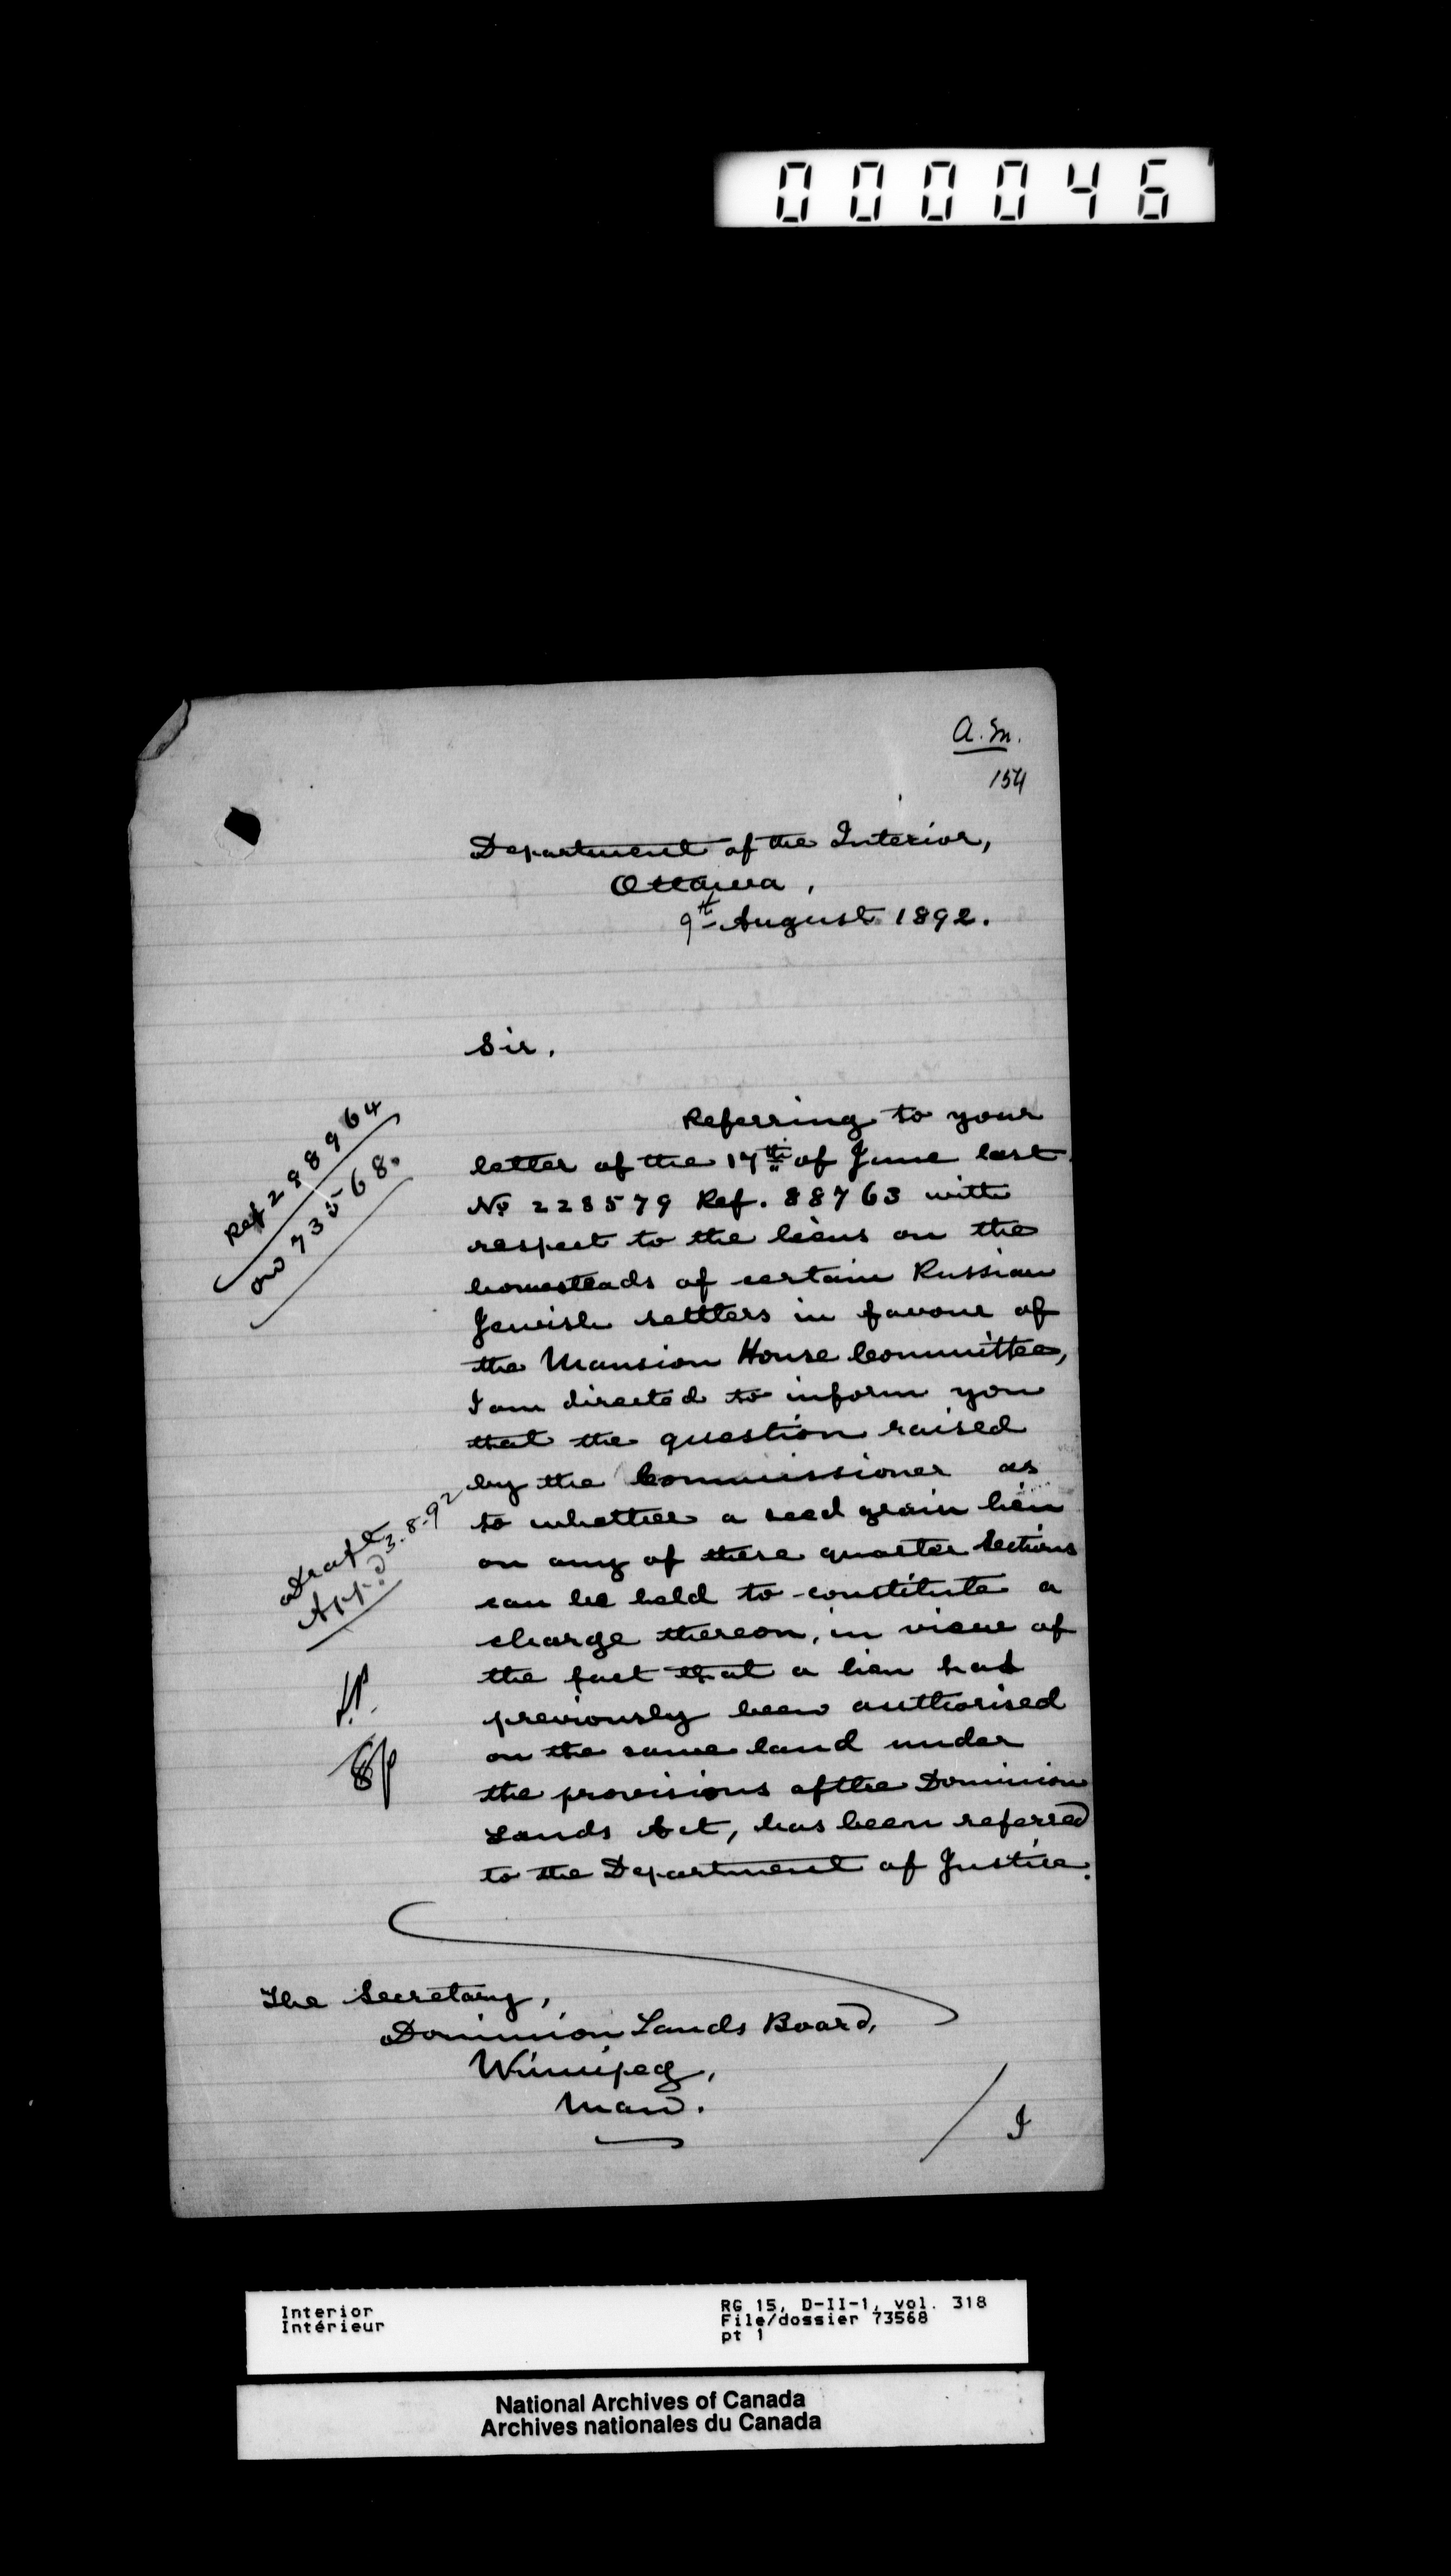 000046
A.M.
154
Department of the Interior,
Ottawa,
9th August 1892.
Sir,
Ref 298964
on 73568.
Referring to your
letter of the 17th of June last
No 228579 Ref. 88763 with
respect to the liens on the
homesteads of certain Russian
Jewish settlers in favour of
the Mansion House Committee,
I am directed to inform you
that the question raised
by the Commissioner as
to whether a seed grain lien
on any of these quarter Sections
can be held to constitute a
charge thereon, in view of
the fact that a lien had
previously been authorised
on the same land under
the provisions of the Dominion
Lands Act, has been referred
to the Department of Justice.
Draft
App.d 3.8.92
The Secretary,
Dominion Lands Board,
Winnipeg,
Man.
Interior
Intérieur
RG 15, D-II-1, vol. 318
File/dossier 73568
pt 1
National Archives of Canada
Archives nationales du Canada